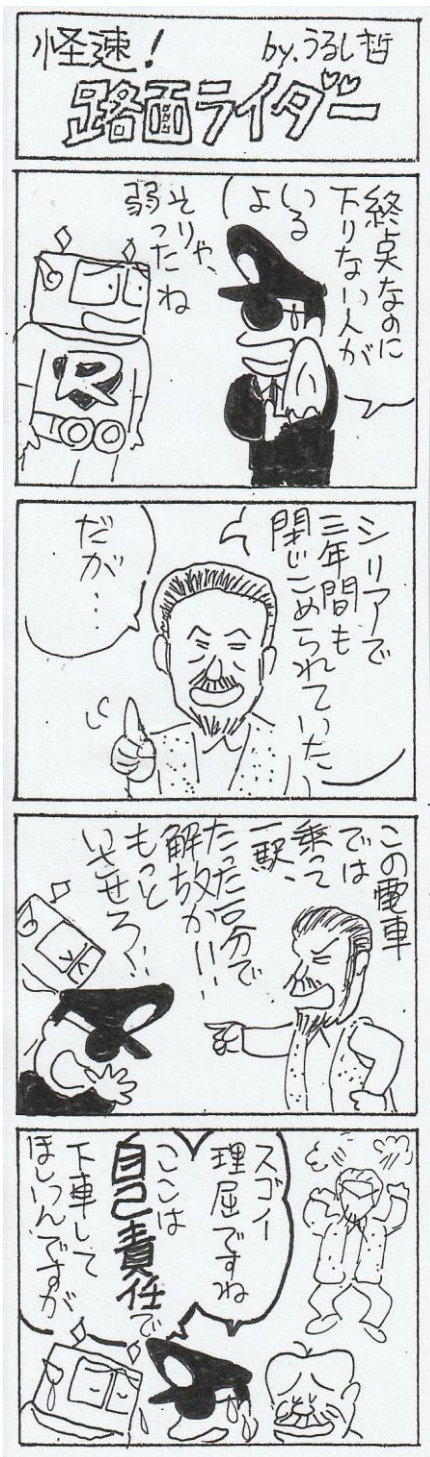 怪速！
by.うるし哲
路面ライダー
終点なのに
下りない人が
いる
しよ
そりゃ、
弱ったね
R
シリアで
三年間も
閉じこめられていた、
だが‥
この電車
では
乗って
一駅、
たった五分で
解放か‼
もっと
いさせろ‼
スゴイ
理屈ですね
ここは
自己責任で
下車して
ほしいんですが